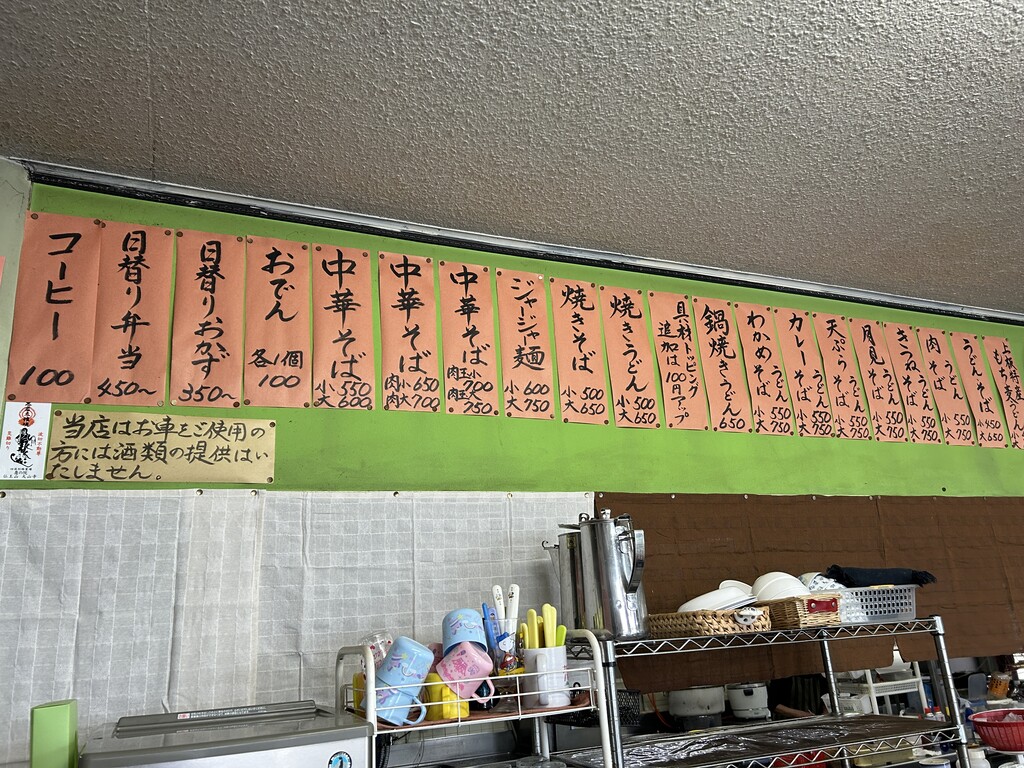 コーヒー
100
日替り弁当
450～
日替りおかず
350～
おでん
各1個
100
中華そば
小 550
大 600
中華そば
肉小 650
肉大 700
中華そば
肉玉小 700
肉玉大 750
ジャージャ麺
小 600
大 750
焼きそば
小 500
大 650
焼きうどん
小 500
大 650
具材トッピング
追加は100円アップ
鍋焼きうどん
650
わかめ うどん そば
小 550
大 750
カレー うどん そば
小 550
大 750
天ぷら うどん そば
小 550
大 750
月見 うどん そば
小 550
大 750
きつね うどん そば
小 550
大 750
肉 うどん そば
小 550
大 750
うどん そば
小 450
大 650
当店はお車をご使用の
方には酒類の提供はい
たしません。